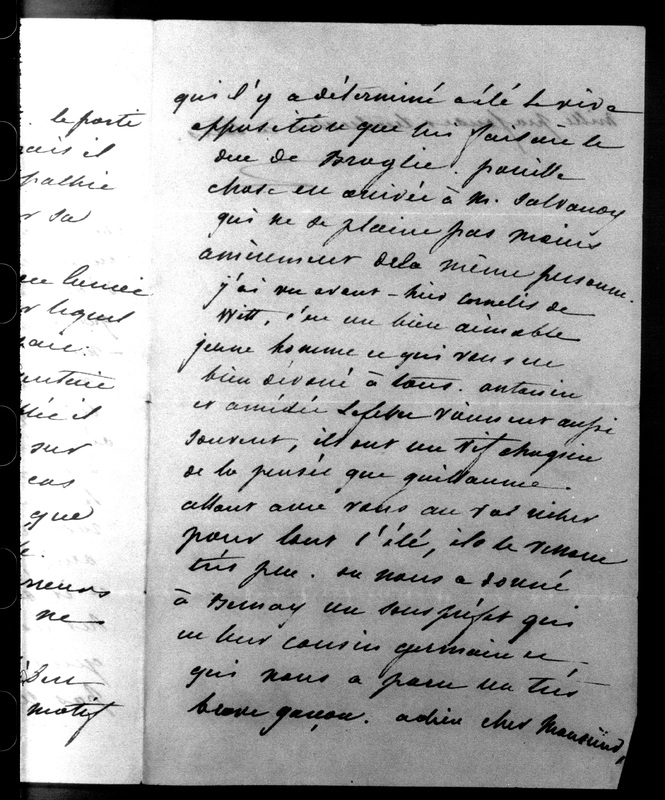 . le porte
ais il
pathie
r sa
r lequel
sur
cas
que
ne
motif
qui l'y a déterminé a été la vive
opposition que lui faisait le
duc de Broglie. pareille
chose est arrivée à M. Salvandy
qui ne se plaint pas moins
amèrement de la même personne.
j'ai vu avant-hier Cornelis de
Witt, c'est un bien aimable
jeune homme et qui vous est
bien dévoué à tous. antonin
et amédée Lefebvre viennent aussi
souvent, ils ont un vif chagrin
de la pensée que guillaume
allant avec vous au val richer
pour tout l'été, ils le verront
très peu. on nous a donné
à Bernay un sous préfet qui
est leur cousin germain et
qui nous a paru un très
brave garçon. adieu cher Monsieur,